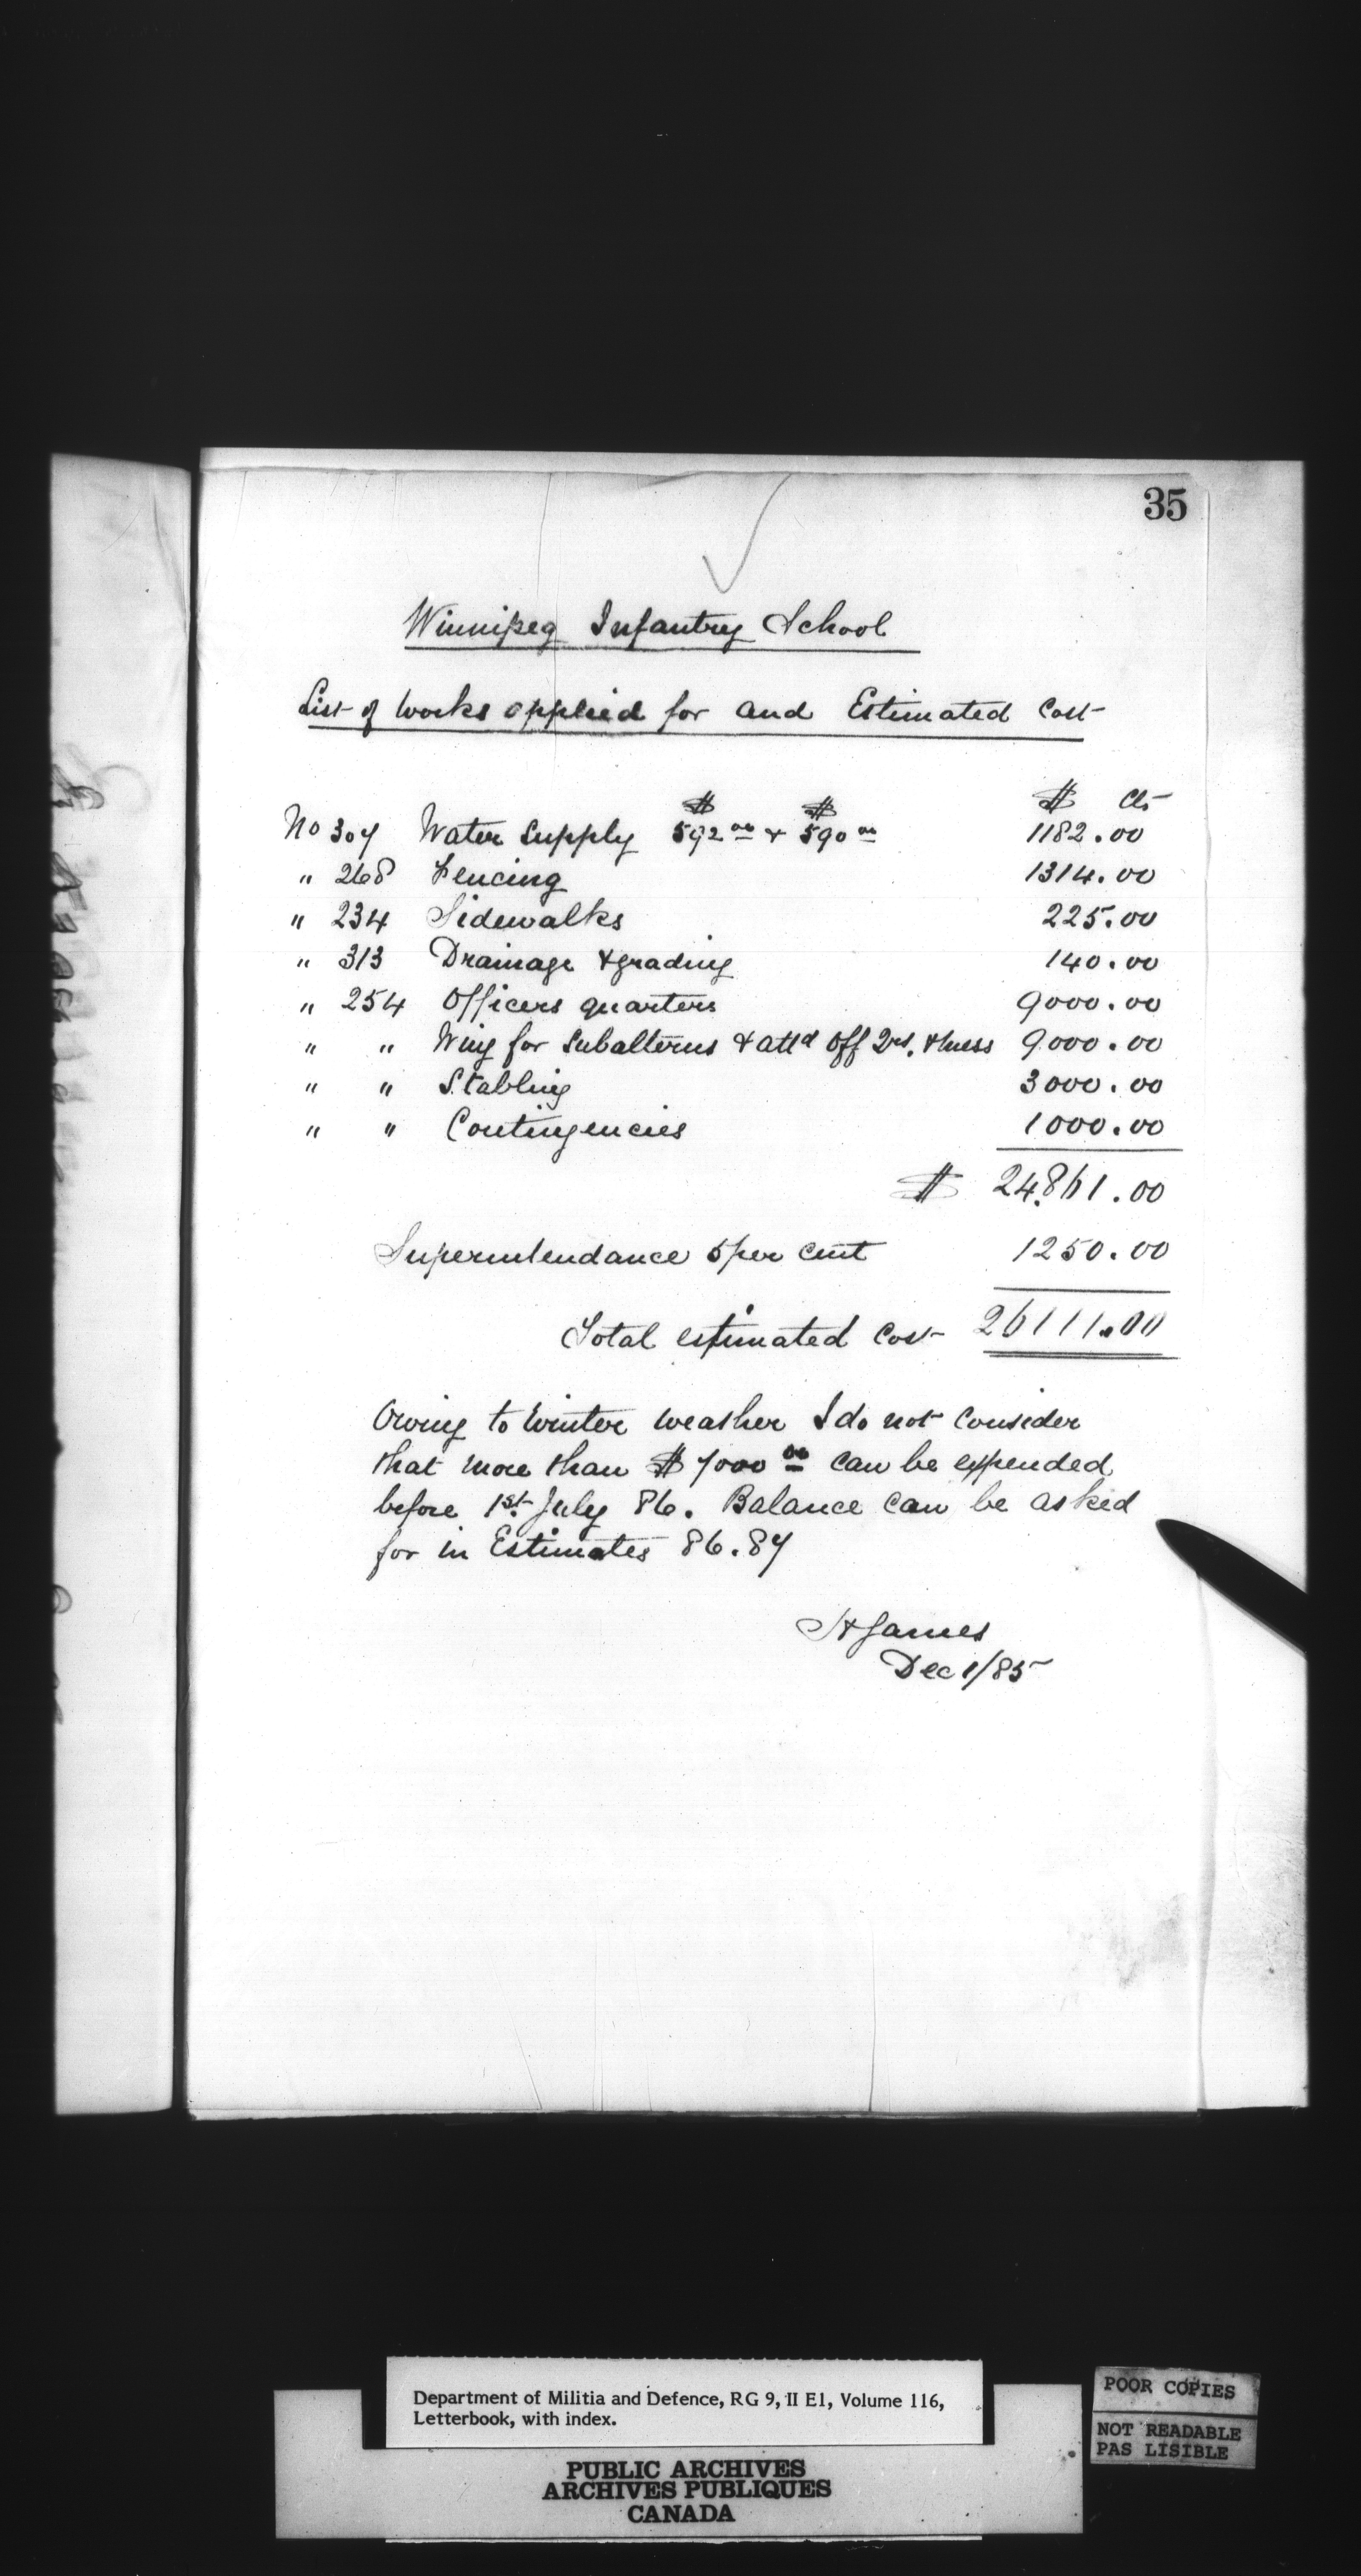 35
Winnipeg Infantry School
List of works applied for and Estimated Cost
$ $ $ cts
No 307 Water Supply 592 00 & 590 00 1182.00
" 268 Fencing 1314.00
" 234 Sidewalks 225.00
" 313 Drainage & grading 140.00
" 254 Officers quarters 9000.00
" " Wing for Subalterns & attd Off Qrs. & mess 9000.00
" " Stabling 3000.00
" " Contingencies 1000.00
$ 24,861.00
Superintendance 5 per cent 1250.00
Total estimated Cost 26111.00
Owing to Winter weather I do not consider
that more than $ 7000 00 can be expended
before 1st. July 86. Balance can be asked
for in Estimates 86.87
H James
Dec 1/85
Department of Militia and Defence, RG 9, II E1, Volume 116,
Letterbook, with index.
PUBLIC ARCHIVES
ARCHIVES PUBLIQUES
CANADA
POOR COPIES
NOT READABLE
PAS LISIBLE